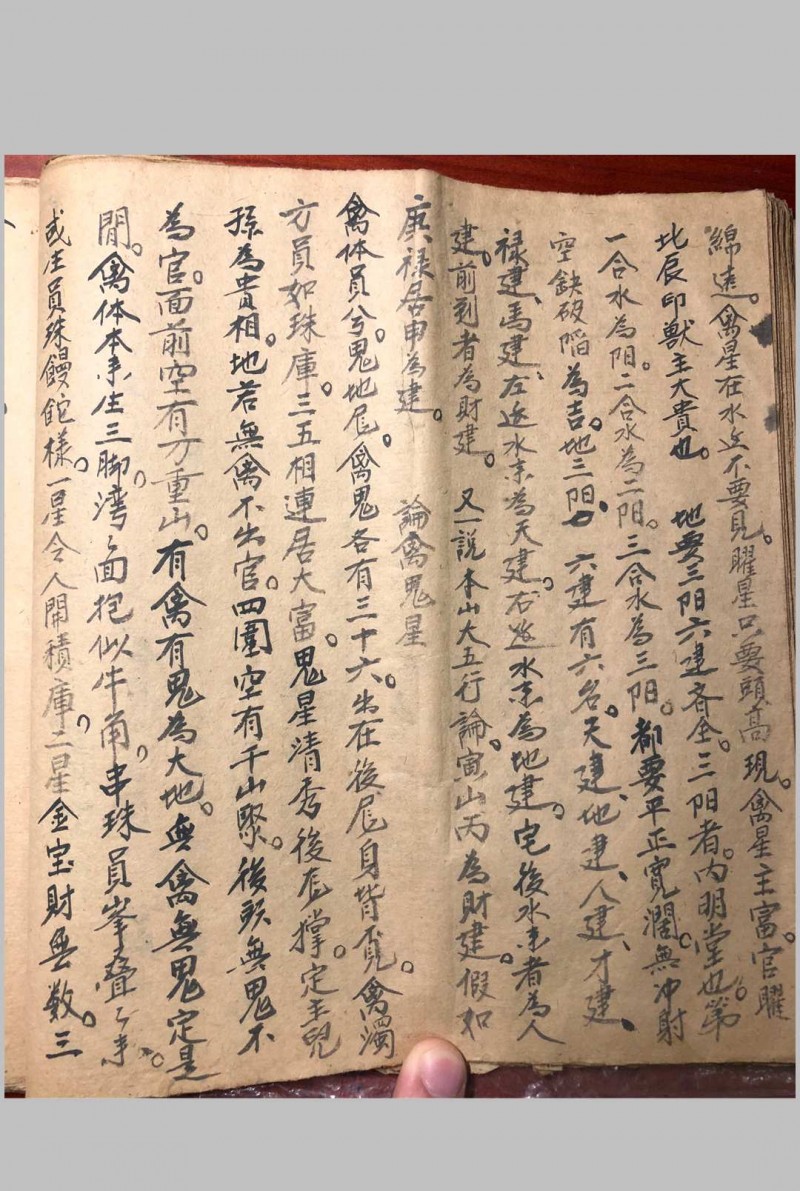 綿遠。禽星在水返不要見。曜星只要頭高現。禽星主富。官曜
北辰印獸主大貴也。 地要三阳六建斉全。三阳者。内明堂也。第
一合水為阳。二合水為二阳。三合水為三阳。都要平正寬濶。無冲射
空缺破陷為吉。地三阳。 六建有六名。天建、地建、人建、才建、
禄建、馬建、左返水来為天建。右返水来為地建。宅後水来者為人
建。前到者為財建。 又一説本山大五行論。寅山丙為財建。假如
庚禄居申為建。 論禽鬼星
禽体員兮。鬼地尾。禽鬼各有三十六。出在後尾身皆覓。禽濁
方員如珠庫。三五相連居大富。鬼星清秀後尾撑。定主兒
孫為貴相。地若無禽不出官。四圍空有千山聚。後頭無鬼不
為官。面前空有万重山。有禽有鬼為大地。無禽無鬼定是
閒。禽体本来生三脚。湾々面抱似牛角。串珠員峯叠々来。
或生員珠饅𩛩樣。一星令人開積庫。二星金宝財無数。三